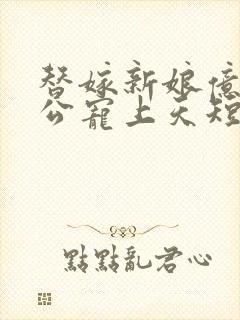 替嫁新娘億
公寵上天短
點點亂君心